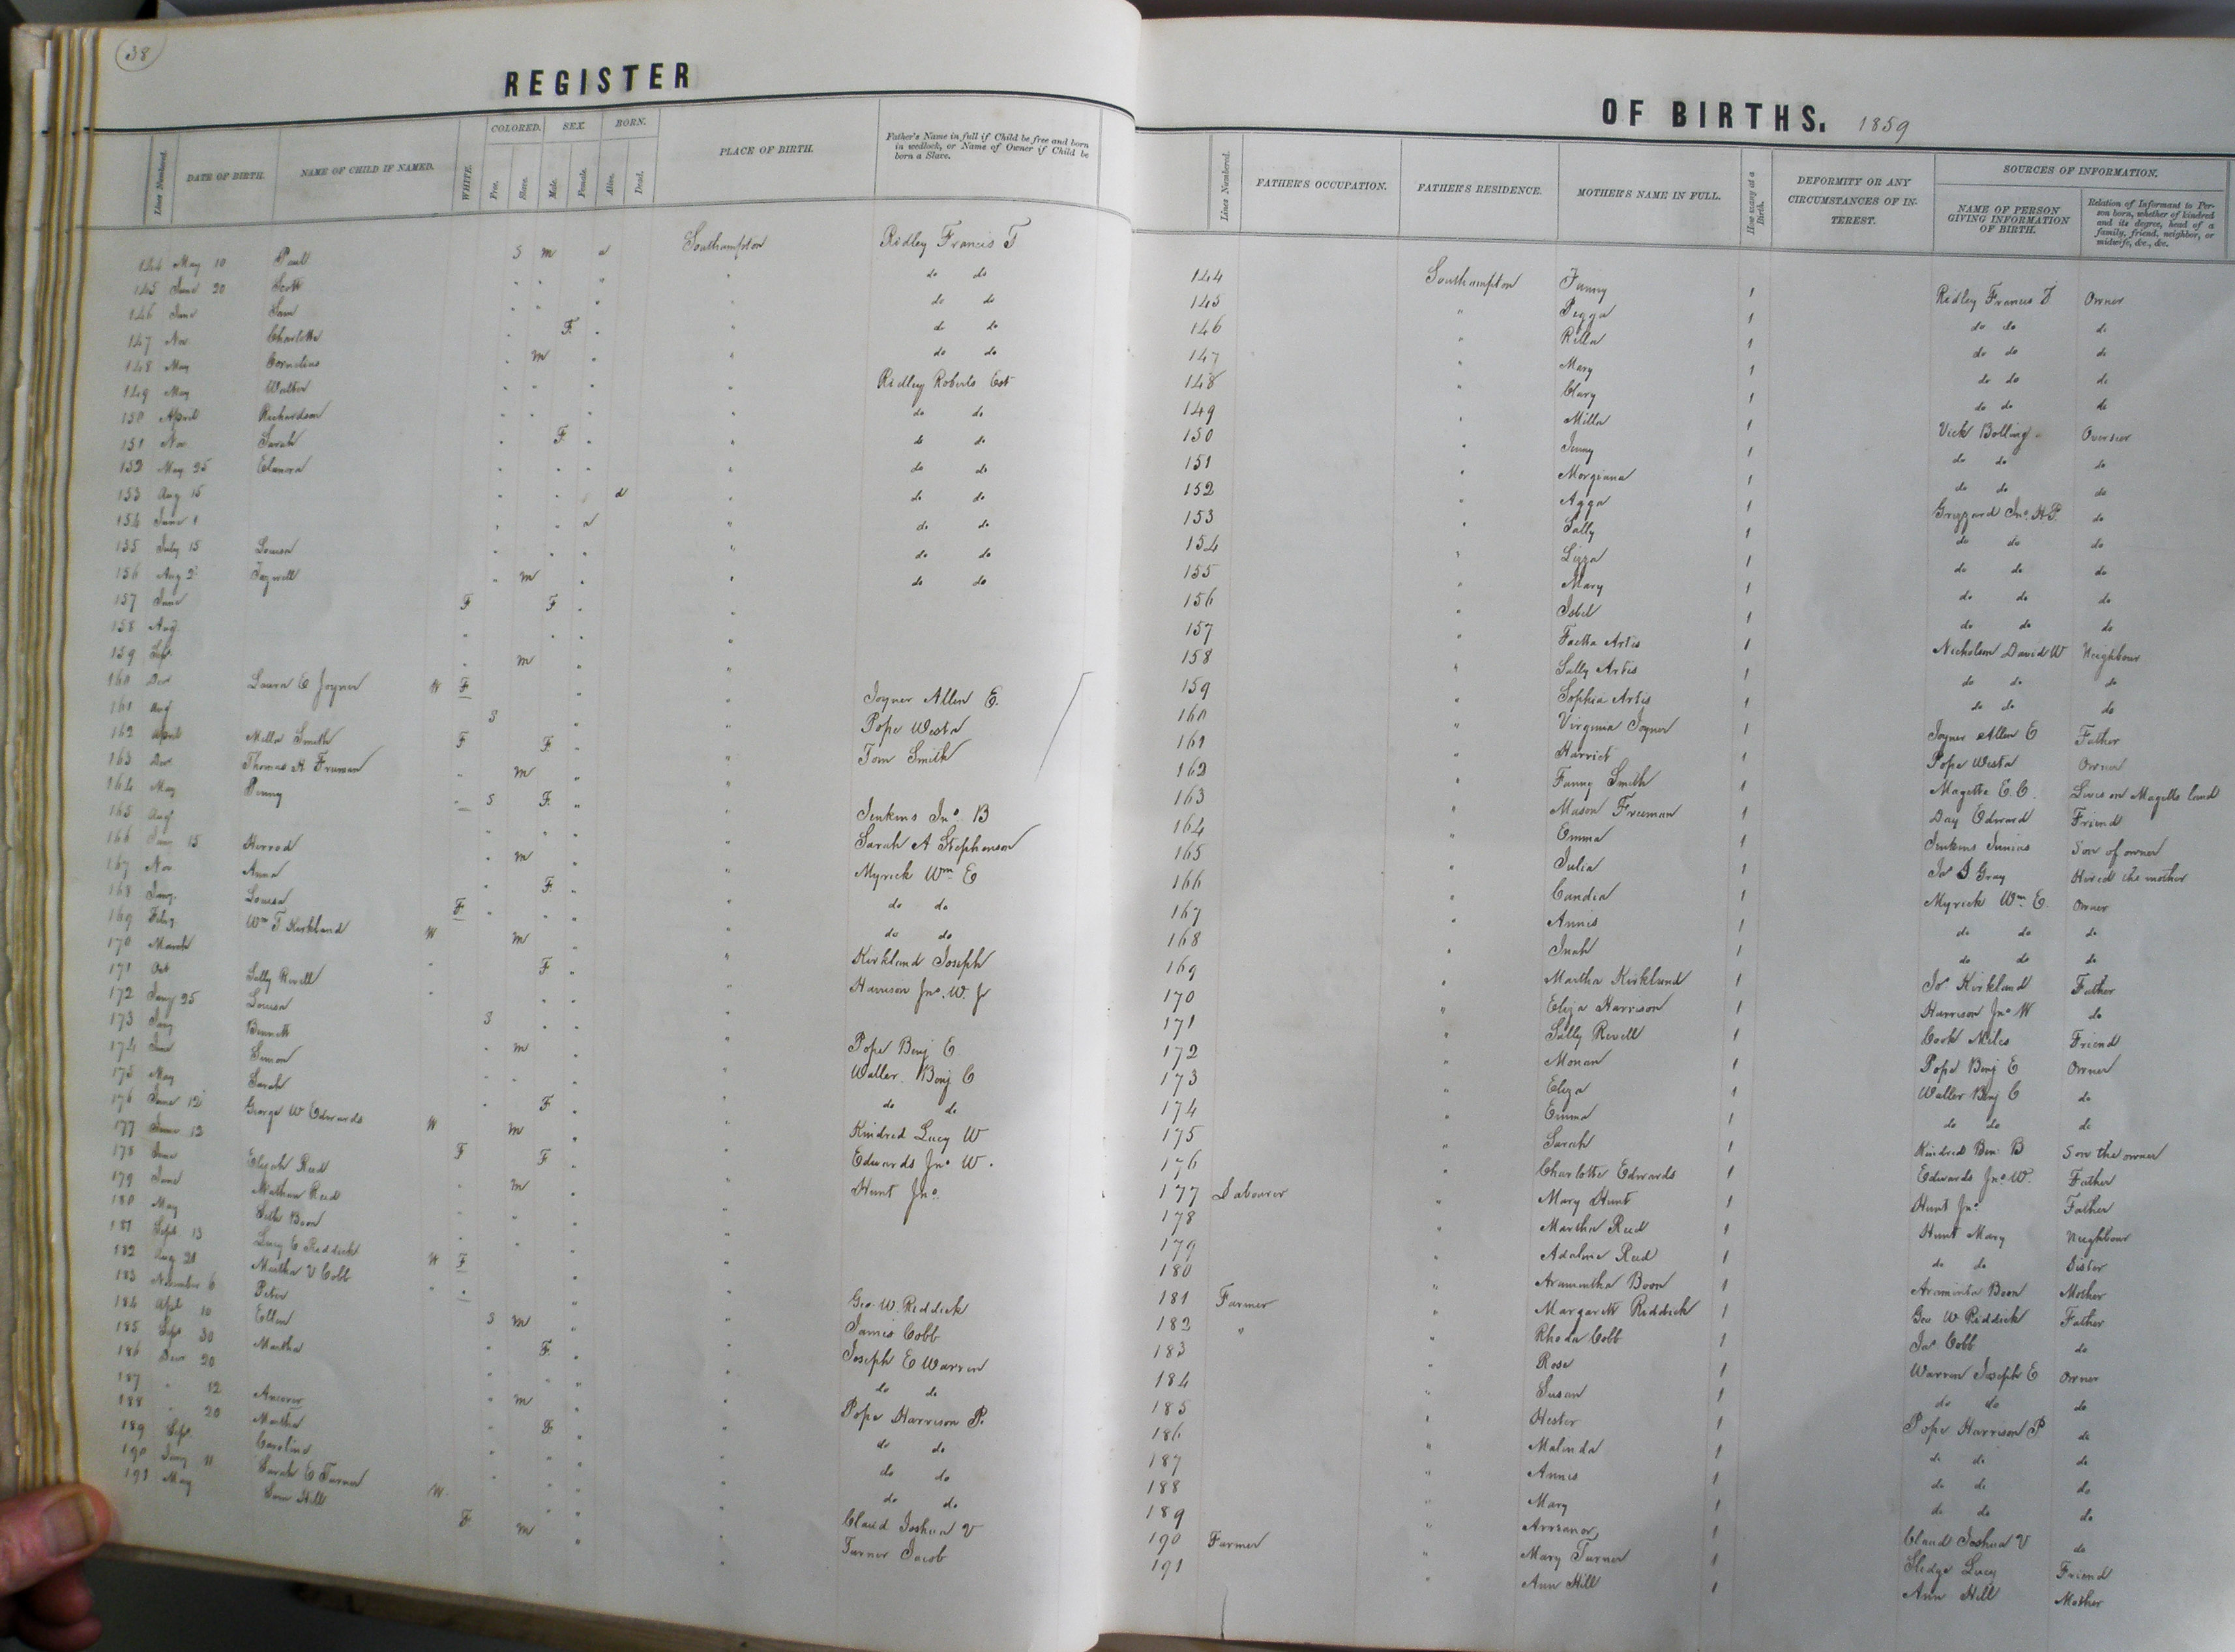 38
REGISTER
Lines Numbered.
DATE OF BIRTH.
NAME OF CHILD IF NAMED.
WHITE.
COLORED.
Free.
Slave.
SEX.
Male.
Female.
BORN.
Alive.
Dead.
PLACE OF BIRTH.
Father's Name in full if Child be free and born
in wedlock, or Name of Owner if Child be
born a Slave.
144 May 10 Paul S m a Southampton Ridley Francis T
145 June 20 Scott do do
146 June Sam do do
147 Nov Charlotte F. do do
148 May Cornelius m do do
149 May Walter Ridley Roberts Est
150 April Richardson do do
151 Nov Sarah F. do do
152 May 25 Elmira do do
153 Aug 15 d do do
154 June 1 a do do
155 July 15 Louisa do do
156 Aug 2 m do do
157 June F F
158 Aug.
159 Sep. m
160 Dec Laura E Joyner W F Joyner Allen E.
161 Aug S Pope Westa
162 April Milla Smith F F. Tom Smith
163 Dec Thomas H Freeman m
164 May Penny S F. Jenkins Jno. B
165 Aug Sarah A Stephenson
166 Jany 15 Herrod m Myrick Wm E
167 Nov Anna F. do do
168 Jany. Louisa F do do
169 Feby. Wm T Kirkland W m Kirkland Joseph
170 March F. Harrison Jno. W. J
171 Oct Sally Revell
172 Jany 25 Louisa S Pope Benj E
173 Jany Bennett m Waller Benj C
174 June Simon do do
175 May Sarah F. Kindred Lucy W
176 June 12 George W Edwards W m Edwards Jno W.
177 June 12 F F Hunt Jno.
178 June Elijah Reed m
179 June Nathan Reed
180 May Seth Boon
181 Sept 13 Lucy E Riddick W F Geo. W. Riddick
182 Aug 21 Martha V Cobb James Cobb
183 November 6 Peter S m Joseph E Warren
184 Apl 10 Ellen F. do do
185 Sep 30 Martha Pope Harrison P.
186 Decr 20 m do do
187 " 12 F. do do
188 " 20 Martha do do
189 Sep. Caroline Claud Joshua V
190 Jany 11 Sarah E Turner W. Turner Jacob
191 May Sam Hill F m
OF BIRTHS. 1859
Lines Numbered.
FATHER'S OCCUPATION.
FATHER'S RESIDENCE.
MOTHER'S NAME IN FULL.
How many at a
Birth.
DEFORMITY OR ANY
CIRCUMSTANCES OF IN-
TEREST.
SOURCES OF INFORMATION.
NAME OF PERSON
GIVING INFORMATION
OF BIRTH.
Relation of Informant to Per-
son born, whether of kindred
and its degree, head of a
family, friend, neighbor, or
midwife, &c., &c.
144 Southampton Fanny 1 Ridley Francis T Owner
145 " Pegga 1 do do do
146 " Rilla 1 do do do
147 " Mary 1 do do do
148 " Clary 1 do do do
149 " Milla 1 Vick Bolling Overseer
150 " Jenny 1 do do do
151 " Morgiana 1 do do do
152 " Agga 1 Grizzard Jno. H P. do
153 " Sally 1 do do do
154 " Lizza 1 do do do
155 " Mary 1 do do do
156 " Isbel 1 do do do
157 " Artis 1 Nicholson David W Neighbour
158 " Sally Artis 1 do do do
159 " Sophia Artis 1 do do do
160 " Virginia Joyner 1 Joyner Allen E Father
161 " Harriet 1 Pope Westa Owner
162 " Fanny Smith 1 Magette E. C. Lives on Magetts land
163 " Mason Freeman 1 Day Edward Friend
164 " Emma 1 Jenkins Junius Son of owner
165 " Julia 1 Gray Hired the mother
166 " Candia 1 Myrick Wm. E. Owner
167 " Annis 1 do do do
168 " Inah 1 do do do
169 " Martha Kirkland 1 Jos Kirkland Father
170 " Eliza Harrison 1 Harrison Jno W do
171 " Sally Revell 1 Cook Miles Friend
172 " Monan 1 Pope Benj E Owner
173 " Eliza 1 Waller Benj C do
174 " Emma 1 do do do
175 " Sarah 1 Kindred Ben. B Son the owner
176 " Charlotte Edwards 1 Edwards Jno. W. Father
177 Labourer " Mary Hunt 1 Hunt Jno. Father
178 " Martha Reed 1 Hunt Mary Neighbour
179 " Adaline Reed 1 do do Sister
180 " Aramintha Boon 1 Araminta Boon Mother
181 Farmer " Margarett Riddick 1 Geo W Riddick Father
182 " " Rhoda Cobb 1 Jas Cobb do
183 " Rose 1 Warren Joseph E Owner
184 " Susan 1 do do do
185 " Hester 1 Pope Harrison P do
186 " Malinda 1 do do do
187 " Annis 1 do do do
188 " Mary 1 do do do
189 " 1 Claud Joshua V do
190 Farmer " Mary Turner 1 Sledge Lucy Friend
191 " Ann Hill 1 Ann Hill Mother